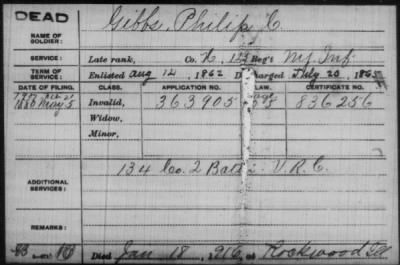 DEAD
NAME OF SOLDIER: Gibbs, Philip C
SERVICE: Late rank, Co. H, Reg't Inf
TERM OF SERVICE: Enlisted Aug 12, 1862 Discharged July 20, 1865
DATE OF FILING. CLASS. APPLICATION NO. LAW. CERTIFICATE NO.
1886 May 5 Invalid, 363905 836256
Widow,
Minor,
ADDITIONAL SERVICES: 134 Co. 2 Batt. V.R.C.
REMARKS:
Died Jan 18, 1916, at Rockwood